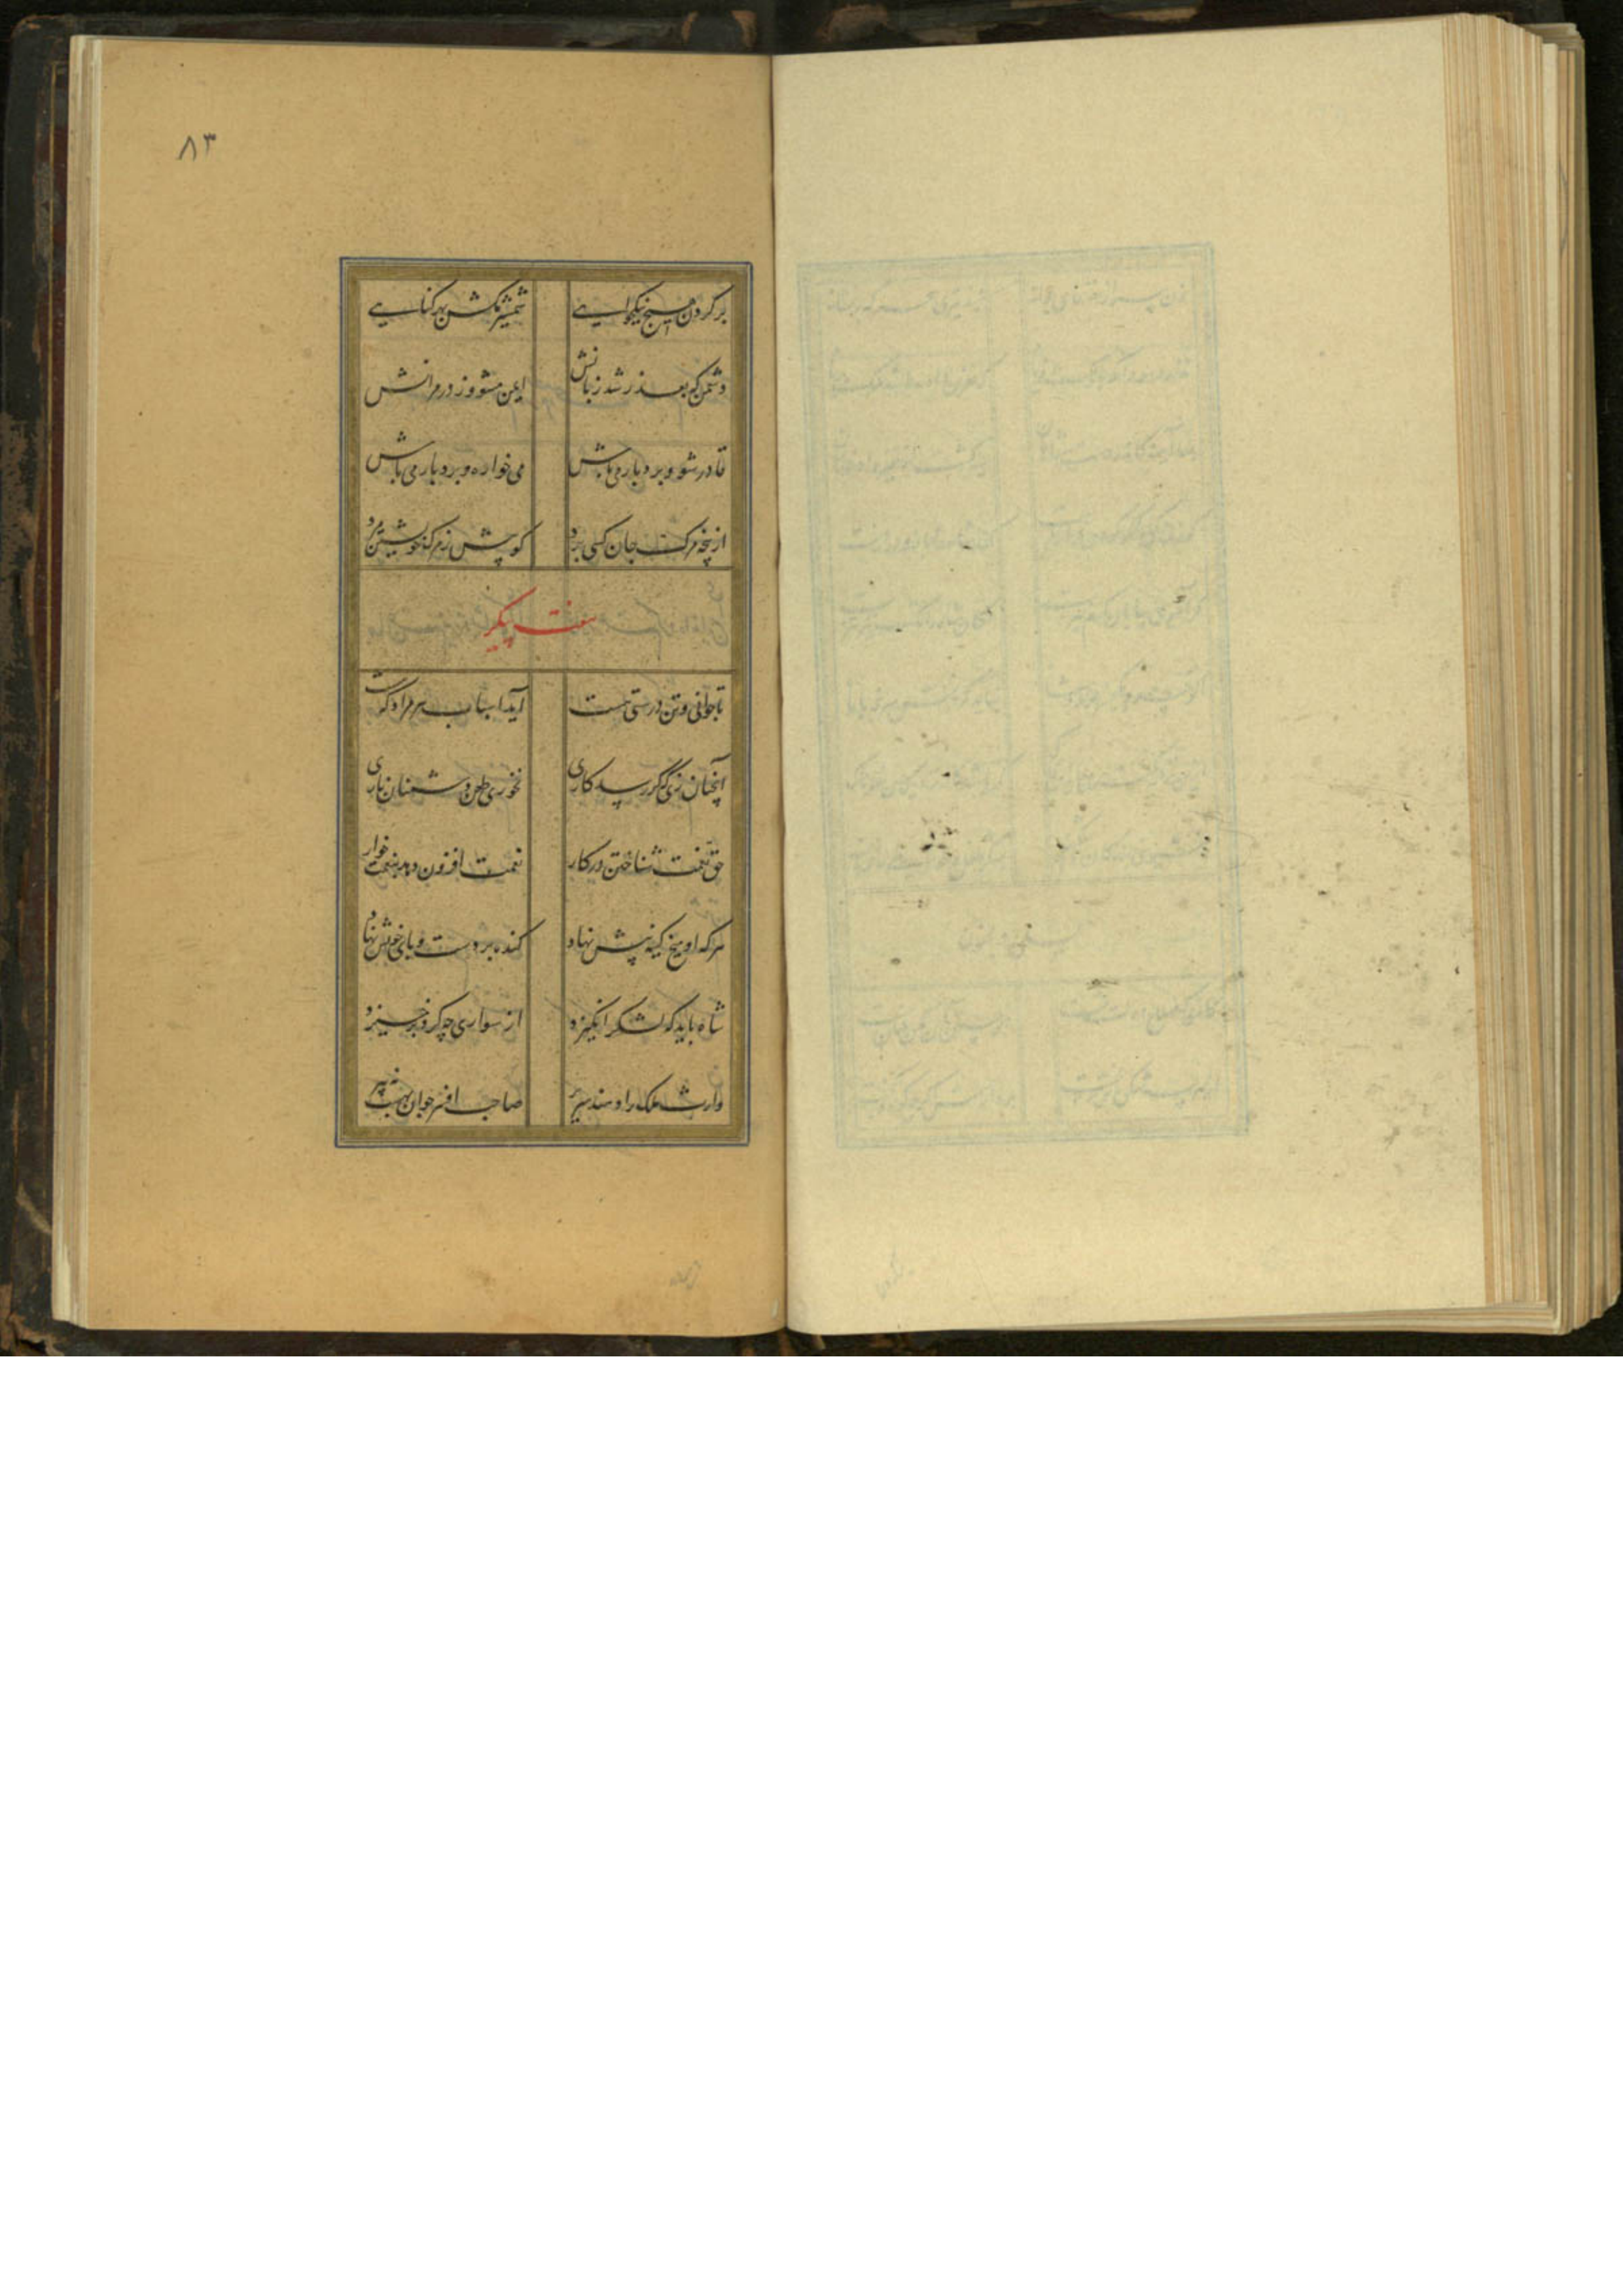 ۸۳
بر گردن هیچ نیکخواهی شمشیر مکش بهر گناهی
دشمن که بعذر شد زبانش ایمن مشو وز در مرانش
قادر شو و بردبار می باش می خواره و بردبار می باش
از پنجه مرگ جان کسی برد کو پیش ز مرگ خویشتن مرد
هفت پیکر
تا جوانی و تن درستی هست آید اسباب هر مراد بدست
آنچنان زی که گر رسد کاری نخوری طعن دشمنان باری
حق نعمت شناختن در کار نعمت افزون دهد بنعمت خوار
هر که او بیخ کینه پیش نهاد کنده بر دست و پای خویش نهاد
شاه باید که لشکر انگیزد از سواری چه گرد برخیزد
وارث ملک را دهند سریر صاحب افسر جوان بهست نه پیر